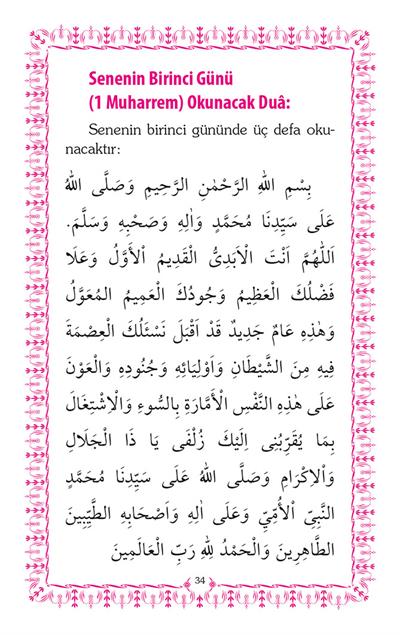 Senenin Birinci Günü
(1 Muharrem) Okunacak Duâ:
Senenin birinci gününde üç defa oku-
nacaktır:
بِسْمِ اللهِ الرَّحْمٰنِ الرَّحِيمِ وَصَلَّى اللهُ
عَلَى سَيِّدِنَا مُحَمَّدٍ وَاٰلِهِ وَصَحْبِهِ وَسَلَّمَ.
اَللّٰهُمَّ اَنْتَ الْاَبَدِىُّ الْقَدِيمُ الْاَوَّلُ وَعَلَا
فَضْلُكَ الْعَظِيمُ وَجُودُكَ الْعَمِيمُ الْمُعَوَّلُ
وَهٰذِهِ عَامٌ جَدِيدٌ قَدْ اَقْبَلَ نَسْئَلُكَ الْعِصْمَةَ
فِيهِ مِنَ الشَّيْطَانِ وَاَوْلِيَائِهِ وَجُنُودِهِ وَالْعَوْنَ
عَلَى هٰذِهِ النَّفْسِ الْاَمَّارَةِ بِالسُّوءِ وَالْاِشْتِغَالَ
بِمَا يُقَرِّبُنِى اِلَيْكَ زُلْفَى يَا ذَا الْجَلَالِ
وَالْاِكْرَامِ وَصَلَّى اللهُ عَلَى سَيِّدِنَا مُحَمَّدٍ
النَّبِىِّ الْاُمِّىِّ وَعَلَى اٰلِهِ وَاَصْحَابِهِ الطَّيِّبِينَ
الطَّاهِرِينَ وَالْحَمْدُ لِلّٰهِ رَبِّ الْعَالَمِينَ
34